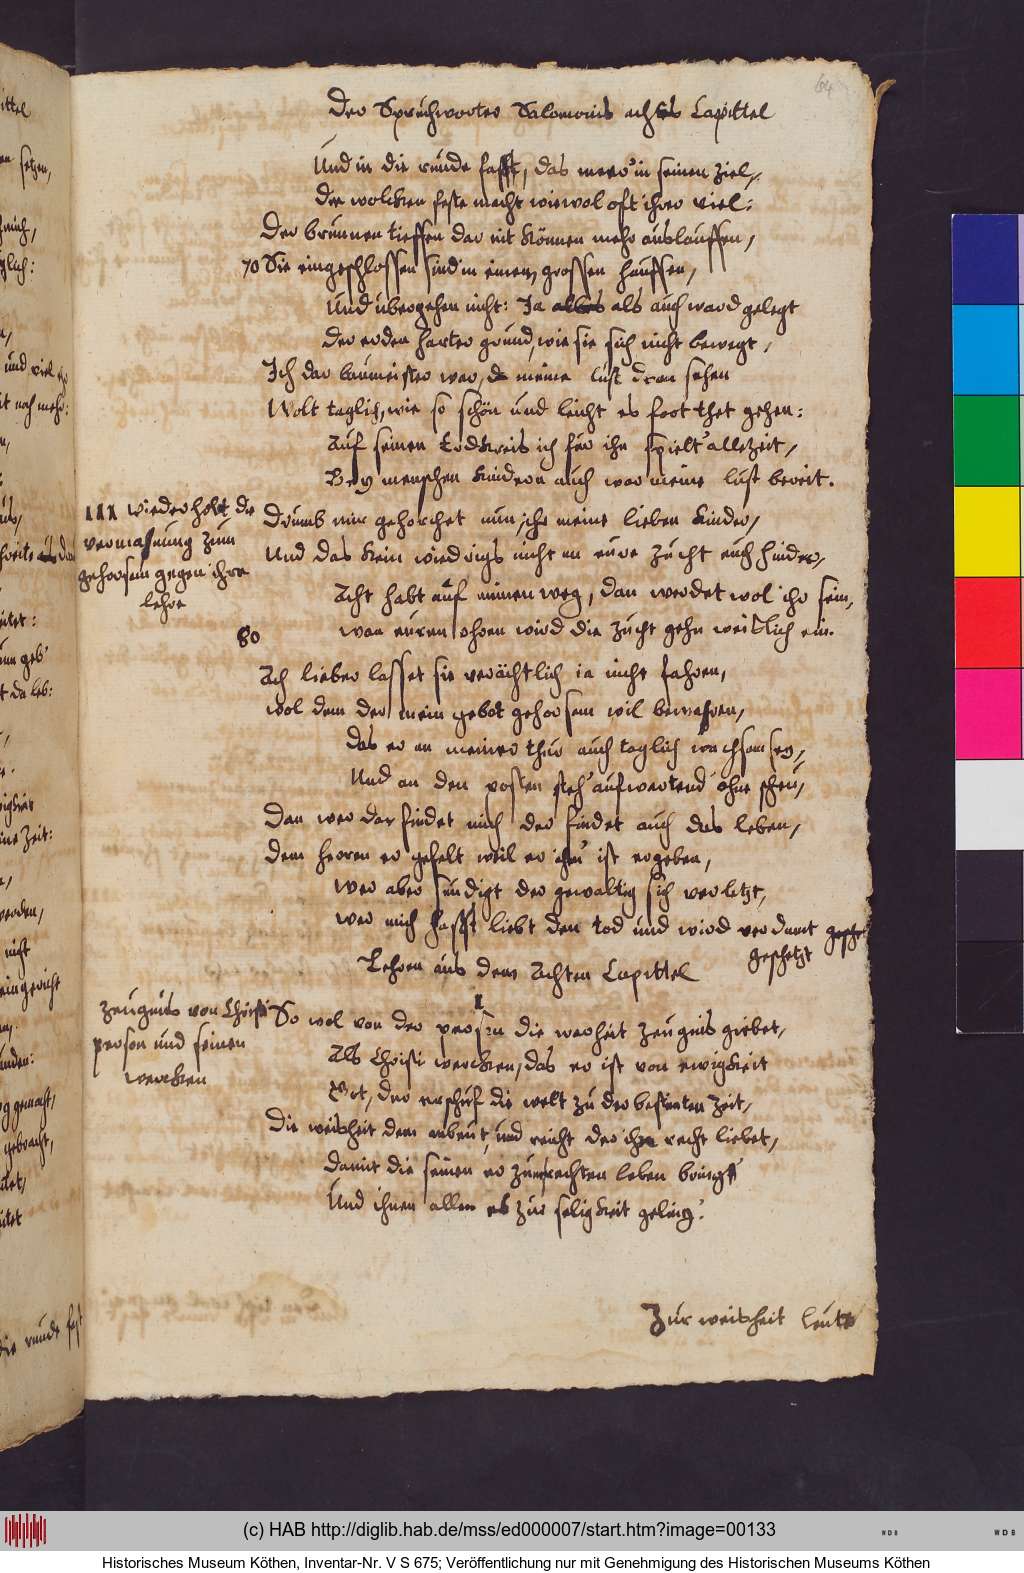 64
Der Spruchworter Salomonis achtes Capittel
Und in die runde fasst, das meer' in seinen ziel,
Der wolcken feste macht wiewol oft ihrer viel:
Der brunnen tieffen dar nit können mehr auslauffen,
70 Sie eingeschlossen sind in einem grossen hauffen,
Und ubergehen nicht: Ja als auch ward gelegt
der erden harter grund, wie sie sich nicht bewegt,
Ich dar baumeister war, meine lust dran sehen
Wolt taglich, wie so schön und leicht es fort thet gehen:
Auf seinen Erdkreis ich für ihn spielt' allezeit,
Bey menschen kindern auch war meine lust bereit.
III wiederholt die
vermahnung zum
gehorsam gegen ihre
lehre
Drumb mir gehorchet nun, ihr meine lieben kinder,
Und das kein wiedrigs nicht an eure zucht euch hinder,
Acht habt auf meinen weg, dan werdet wol ihr sein,
80 wan euren ohren wird die zucht gehn weißlich ein.
Ach lieber lasset sie verächtlich ia nicht fahren,
wol dem der mein gebot gehorsam wil bewahren,
das er an meiner thür auch taglich wachsam sey,
Und an den posten steh' aufwertend ohne scheu,
Dan wer dar findet mich der findet auch das leben,
dem herren er gefelt weil er ihm ist ergeben,
wer aber sündigt der gewaltig sich verletzt,
wer mich hasst liebt den tod und wird verdamt
geschetzt
Lehren aus dem Achten Capittel
I
Zeugnus von Christi
person und seinen
wercken
So wol von der person die warheit zeugnis giebet,
Als Christi wercken, das er ist von ewigkeit
Got, der erschuf die welt zu der bestimten zeit,
Die weisheit dem anbeut, und reicht der recht liebet,
damit die seinen er zum rechten leben bringt
Und ihnen allen es zur seligkeit geling.
Zur weisheit leut
(c) HAB http://diglib.hab.de/mss/ed000007/start.htm?image=00133
Historisches Museum Köthen, Inventar-Nr. V S 675; Veröffentlichung nur mit Genehmigung des Historischen Museums Köthen